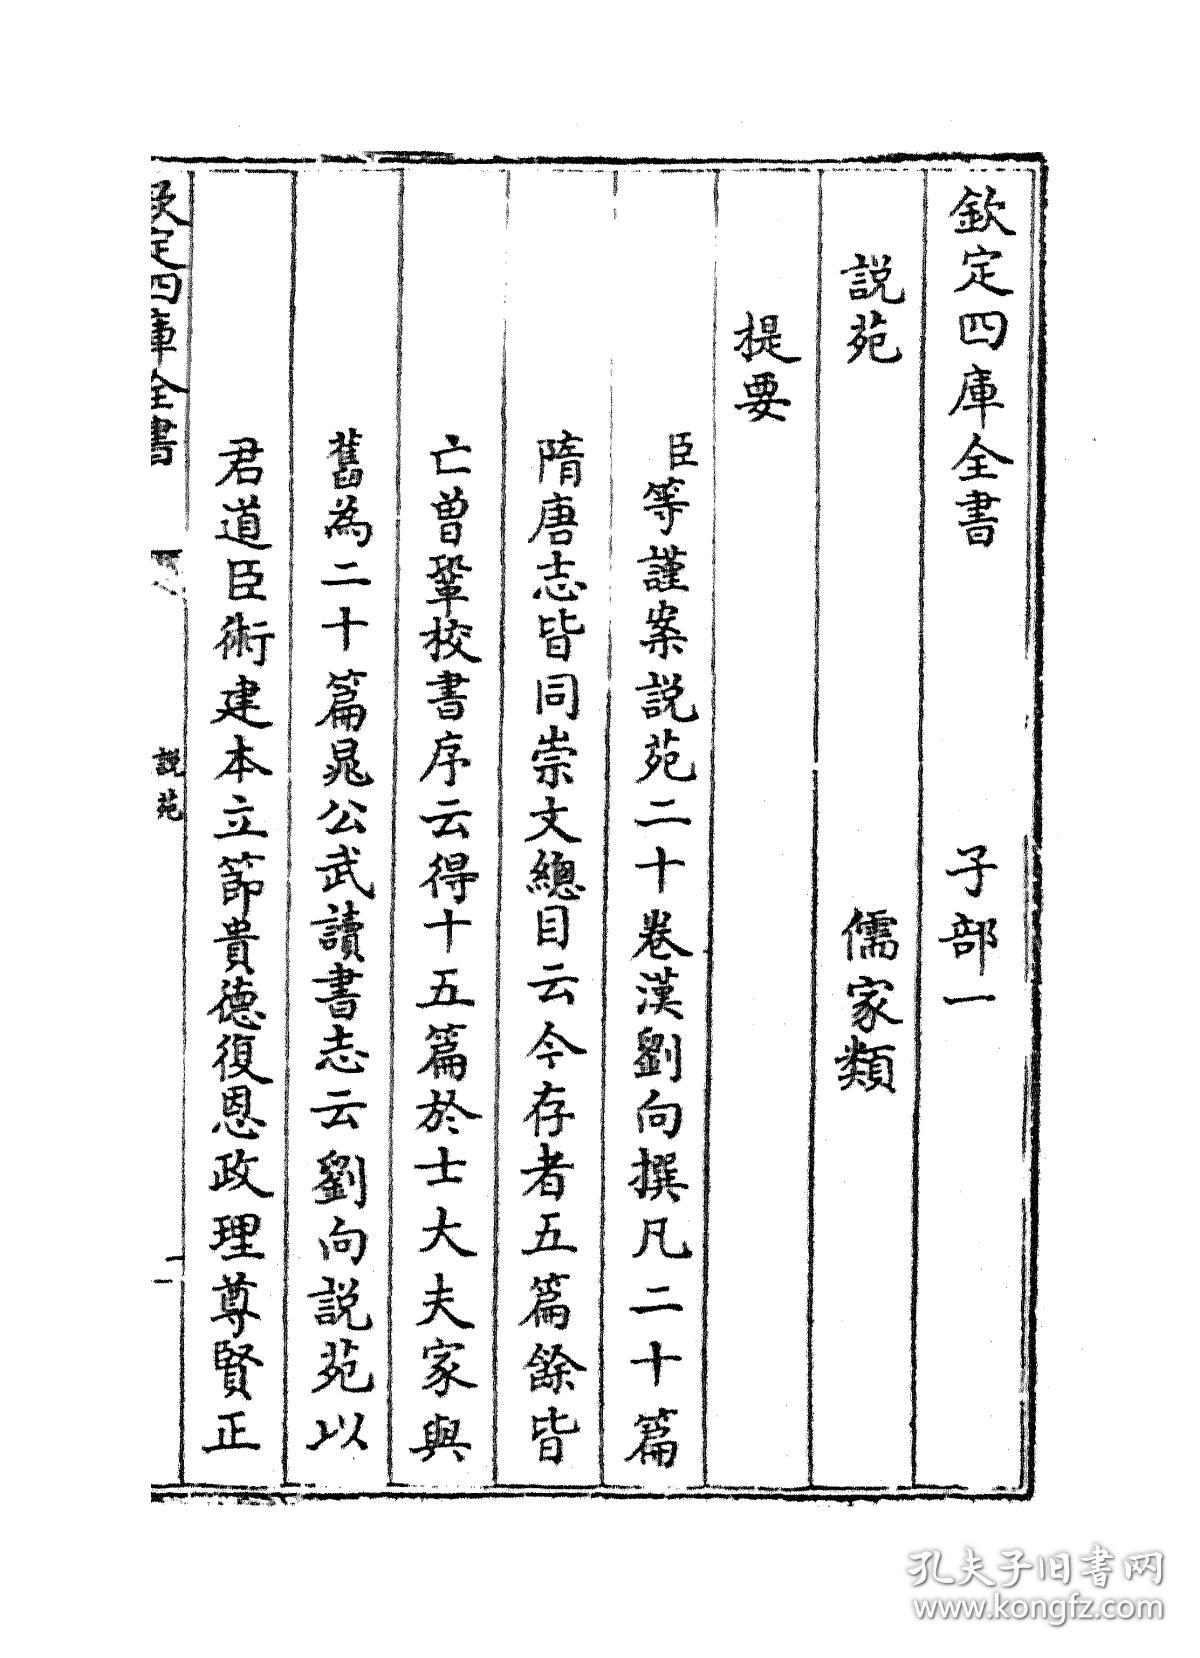 欽定四庫全書　子部一
説苑　儒家類
提要
臣等謹案説苑二十卷漢劉向撰凡二十篇
隋唐志皆同崇文總目云今存者五篇餘皆
亡曽鞏校書序云得十五篇於士大夫家與
舊為二十篇晁公武讀書志云劉向説苑以
君道臣術建本立節貴德復恩政理尊賢正
欽定四庫全書　説苑　一
孔夫子旧书网
www.kongfz.com